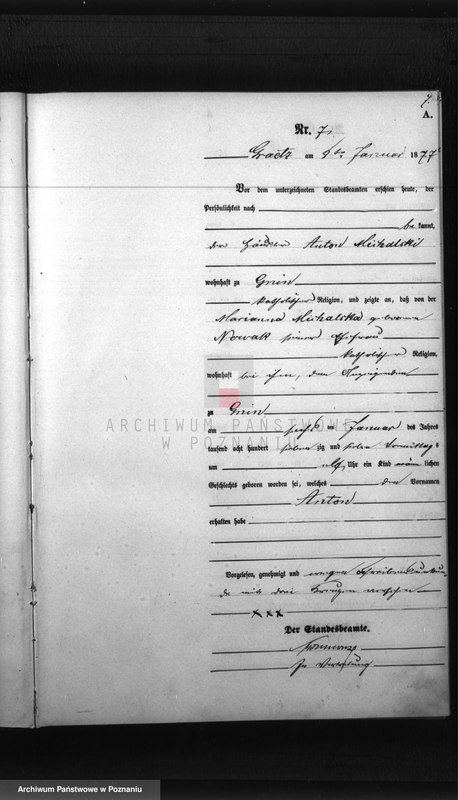 7.
A.
Nr. 7.
Graetz am 8ten Januar 1877
Vor dem unterzeichneten Standesbeamten erschien heute, der
Persönlichkeit nach
be kannt,
der Häusler Anton Michalski
wohnhaft zu
katholischer Religion, und zeigte an, daß von der
Marianna Michalska geborenen
Nowak seiner Ehefrau
katholischer Religion,
wohnhaft bei ihm, dem Anzeigenden
zu
am sechs ten Januar des Jahres
tausend acht hundert sieben zig und sieben Vormittags
um elf Uhr ein Kind männ lichen
Geschlechts geboren worden sei, welches den Vornamen
Anton
erhalten habe
Vorgelesen, genehmigt und wegen Schreibensunkun
de mit drei Kreuzen versehen
×××
Der Standesbeamte.
In Vertretung
ARCHIWUM PAŃSTWOWE
W POZNANIU
Archiwum Państwowe w Poznaniu